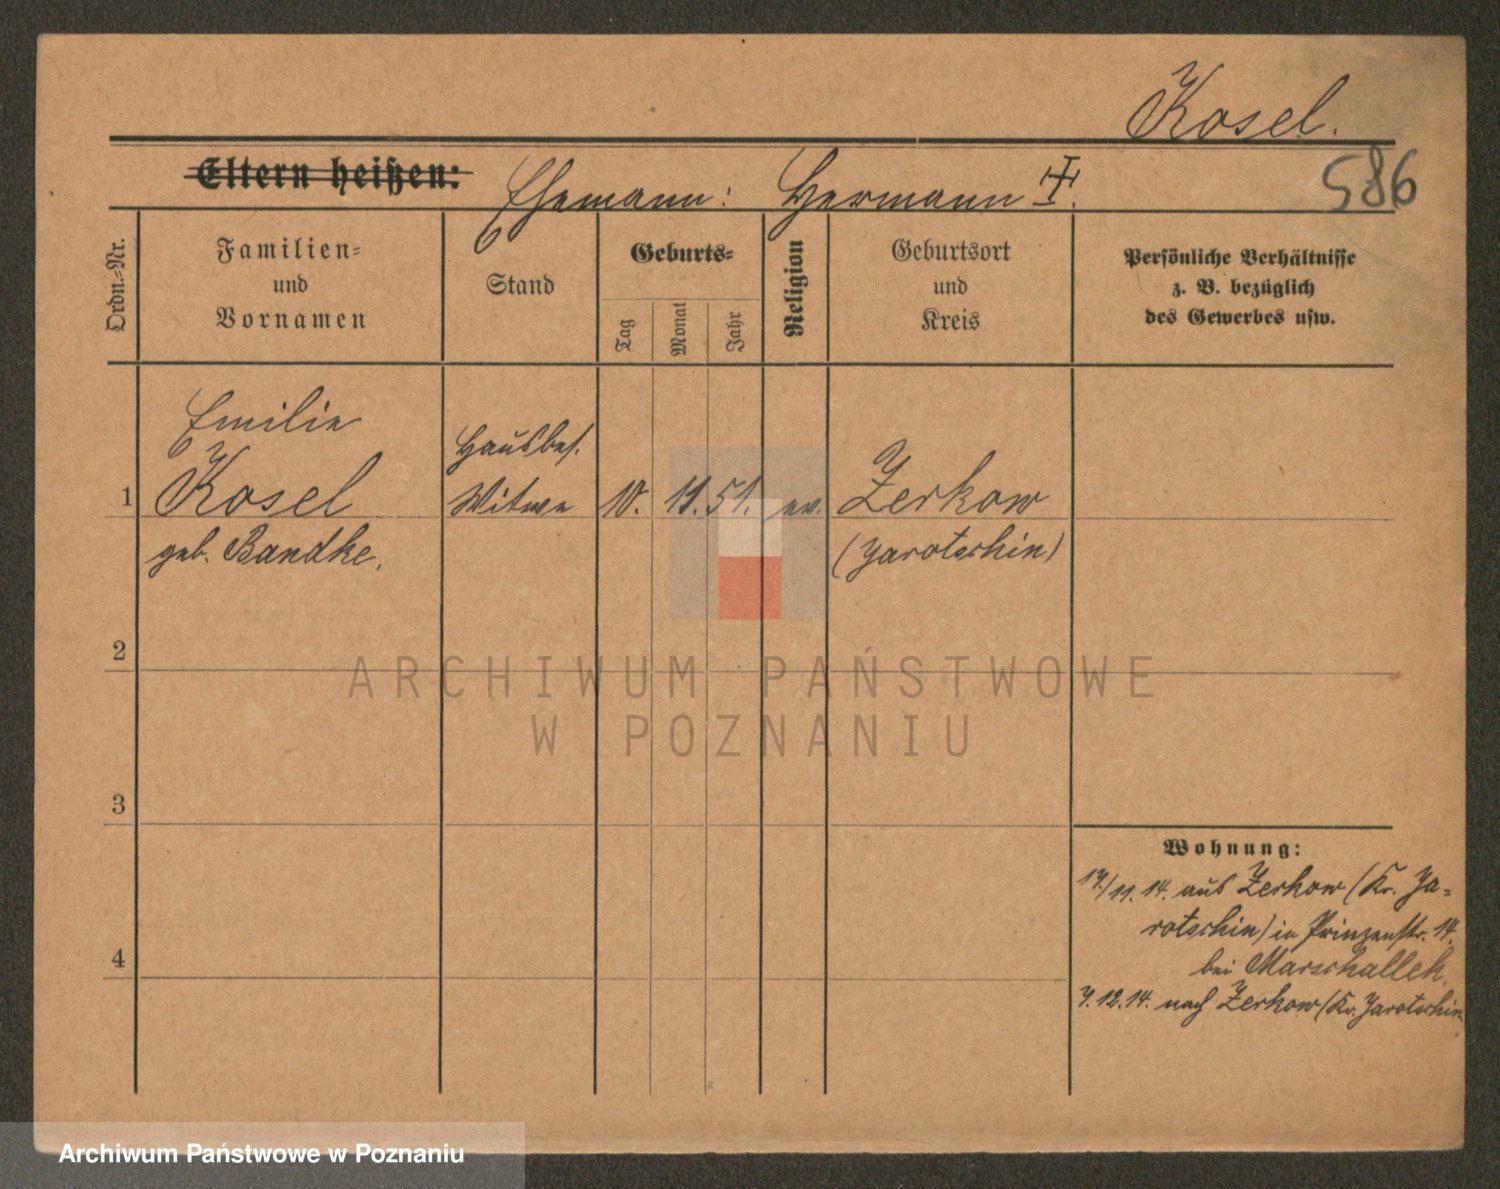 Kosel.
586
Eltern heißen: Ehemann: Hermann
Ordn.-Nr.
Familien-
und
Vornamen
Stand
Geburts-
Tag
Monat
Jahr
Religion
Geburtsort
und
Kreis
Persönliche Verhältnisse
z. B. bezüglich
des Gewerbes usw.
1
Emilie
Kosel
geb. Bandke.
Hausbes.
Witwe
10.
11.
51.
ev.
Zerkow
(Jarotschin)
2
3
4
Wohnung:
17./11.14. aus Zerkow (Kr. Ja-
rotschin) in Prinzenstr. 14.
bei Marschallek.
7.12.14. nach Zerkow (Kr. Jarotschin
ARCHIWUM PAŃSTWOWE
W POZNANIU
Archiwum Państwowe w Poznaniu